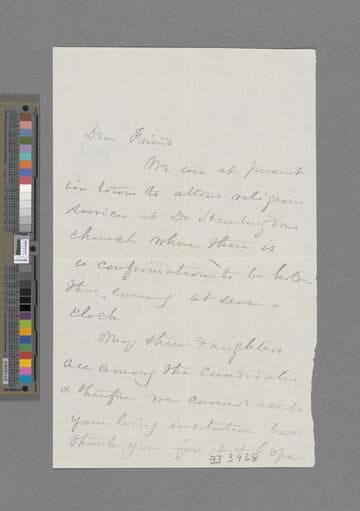 Dear Friend
We are at present
in town to attend religious
services at Dr Huntingdons
church where there is
a confirmation to be holden
this evening at seven o
clock
My three daughters
are among the candidates
& therefore we cannot accept
your loving invitation but
thank you for it & hope
FI 3928